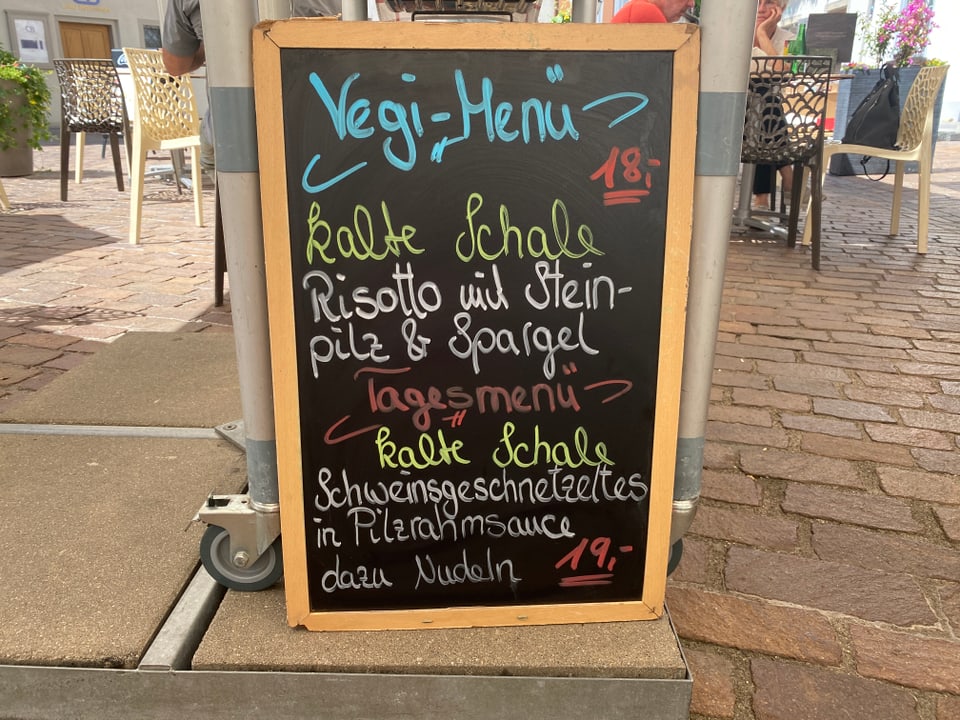 Vegi-Menü
18,-
kalte Schale
Risotto mit Stein-
pilz & Spargel
Tagesmenü
kalte Schale
Schweinsgeschnetzeltes
in Pilzrahmsauce
dazu Nudeln 19,-